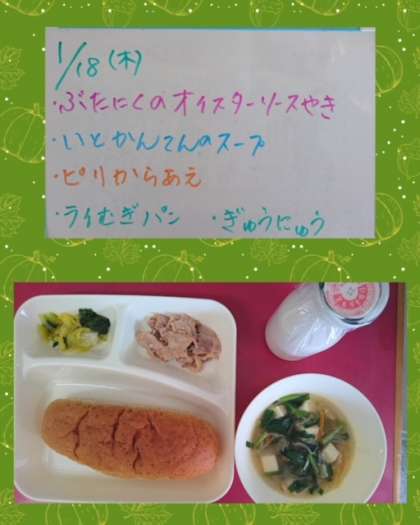 1/18(木)
・ぶたにくのオイスターソースやき
・いとかんてんのスープ
・ピリからあえ
・ライむぎパン ・ぎゅうにゅう